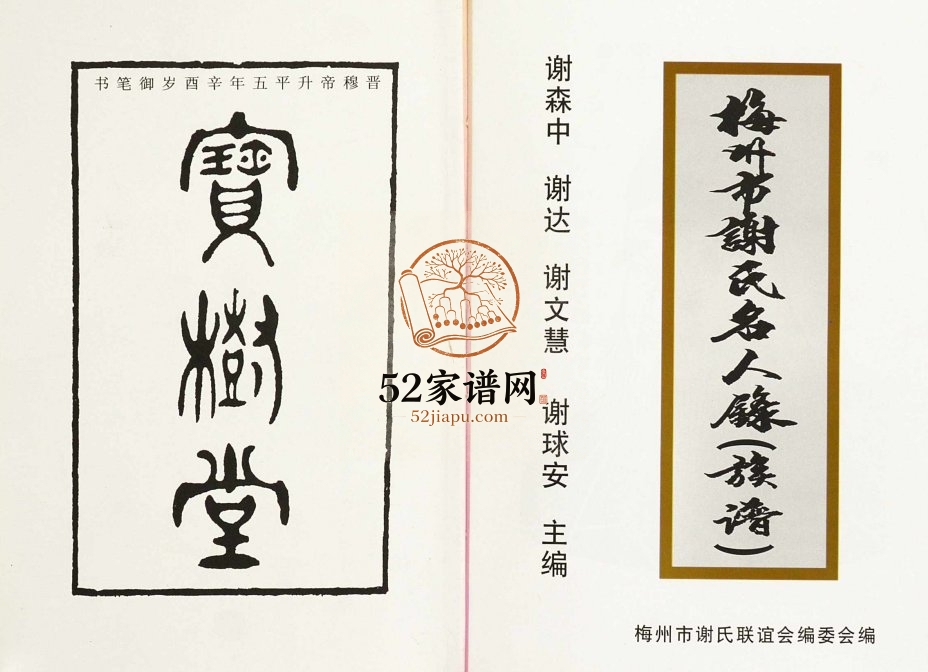 梅州市謝氏名人錄(族譜)
谢森中 谢达 谢文慧 谢球安 主编
梅州市谢氏联谊会编委会编
晋穆帝升平五年辛酉岁御笔书
寶樹堂
52家谱网
52jiapu.com